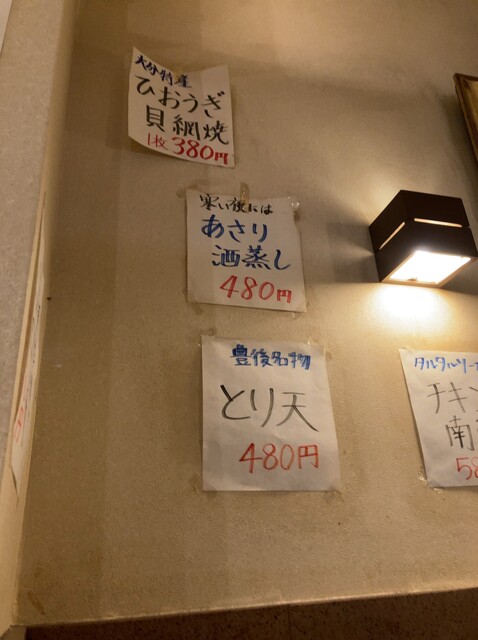 大分特産
ひおうぎ
貝網焼
1枚380円
寒い夜には
あさり
酒蒸し
480円
豊後名物
とり天
480円
タルタルソー
チキン
南
58